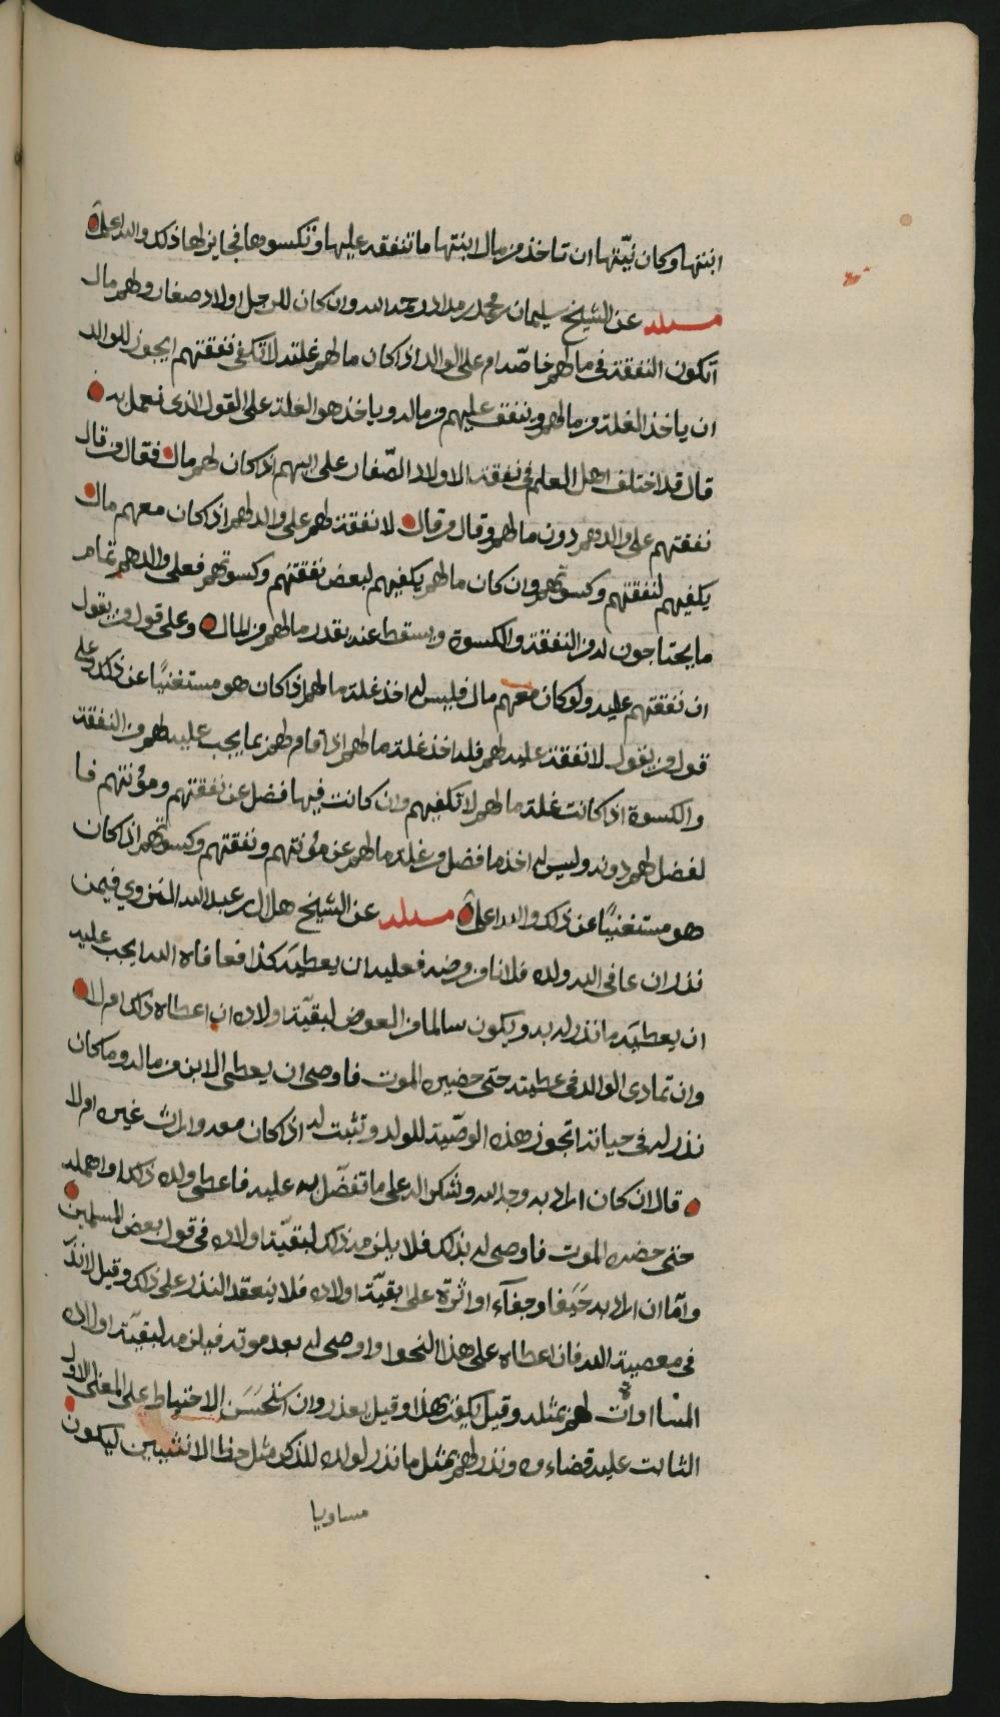 ابنتها وكان نيّتها ان تاخذ من مال ابنتها ما تنفقه عليها وتكسوها فجايز لها ذلك والله اعلم
مسئلة عن الشيخ سليمان بن محمد بن مداد رحمه الله وان كان للرجل اولاد صغار ولهم مال
اتكون النفقة في مالهم خاصّة ام على الوالد اذا كان مالهم غلته لا تكفي نفقتهم ايجوز للوالد
ان ياخذ الغلة من مالهم وينفق عليهم من ماله وياخذ هو الغلة على القول الذي نعمل به
قال قد اختلف اهل العلم في نفقة الاولاد الصّغار على ابيهم اذا كان لهم مال فقال من قال
نفقتهم على والدهم دون مالهم وقال من قال لا نفقة لهم على والدهم اذا كان معهم مال
يكفيهم لنفقتهم وكسوتهم وان كان مالهم يكفيهم لبعض نفقتهم وكسوتهم فعلى والدهم تمام
ما يحتاجون له من النفقة والكسوة ويسقط عنه بقدر مالهم من المال وعلى قول من يقول
ان نفقتهم عليه ولو كان معهم مال فليس له اخذ غلة مالهم اذا كان هو مستغنيًا عن ذلك وعلى
قول من يقول لا نفقة عليه لهم فله اخذ غلة مالهم اذا قام لهم بما يجب عليه لهم من النفقة
والكسوة اذا كانت غلة مالهم لا تكفيهم وان كانت فيها فضل عن نفقتهم ومؤنتهم فا
لفضل لهم دونه وليس له اخذ ما فضل من غلة مالهم عن مؤنتهم ونفقتهم وكسوتهم اذا كان
هو مستغنيًا عن ذلك والله اعلم مسئلة عن الشيخ هلال بن عبدالله النزوي فيمن
نذر ان عافى الله ولده فلانا من مرضه فعليه ان يعطيه كذا فعافاه الله ايجب عليه
ان يعطيه ما نذر له به ويكون سالما من العوض لبقيّة اولاده ان اعطاه ذلك ام لا
وان تمادى الوالد في عطيته حتى حضره الموت فاوصى ان يعطى الابن من ماله وما كان
نذر له في حياته اتجوز هذه الوصّية للولد وتثبت له اذا كان معه وارث غيره ام لا
قال ان كان اراد به وجه الله وشكر الله على ما تفضّل به عليه فاعطى ولده ذلك او اهمله
حتى حضره الموت فاوصى له بذلك فلا يلزمه ذلك لبقيّة اولاده في قول بعض المسلمين
وامّا ان اراد به حَيفا وجفآء او اثرة على بقيّة اولاده فلا ينعقد النذر على ذلك وقيل لا نذر
في معصية الله فان اعطاه على هذا النحو او اوصى له بعد موته فيلزمه لبقيّة اولاده
المساوات لهم بمثله وقيل يكفيه هذا وقيل يعذر وان استحسَن الاحتياط على المعنى الاول
الثابت عليه قضاءه ونذر لهم بمثل ما نذر لولده للذكر مثل حظ الانثيين ليكون
مساويا